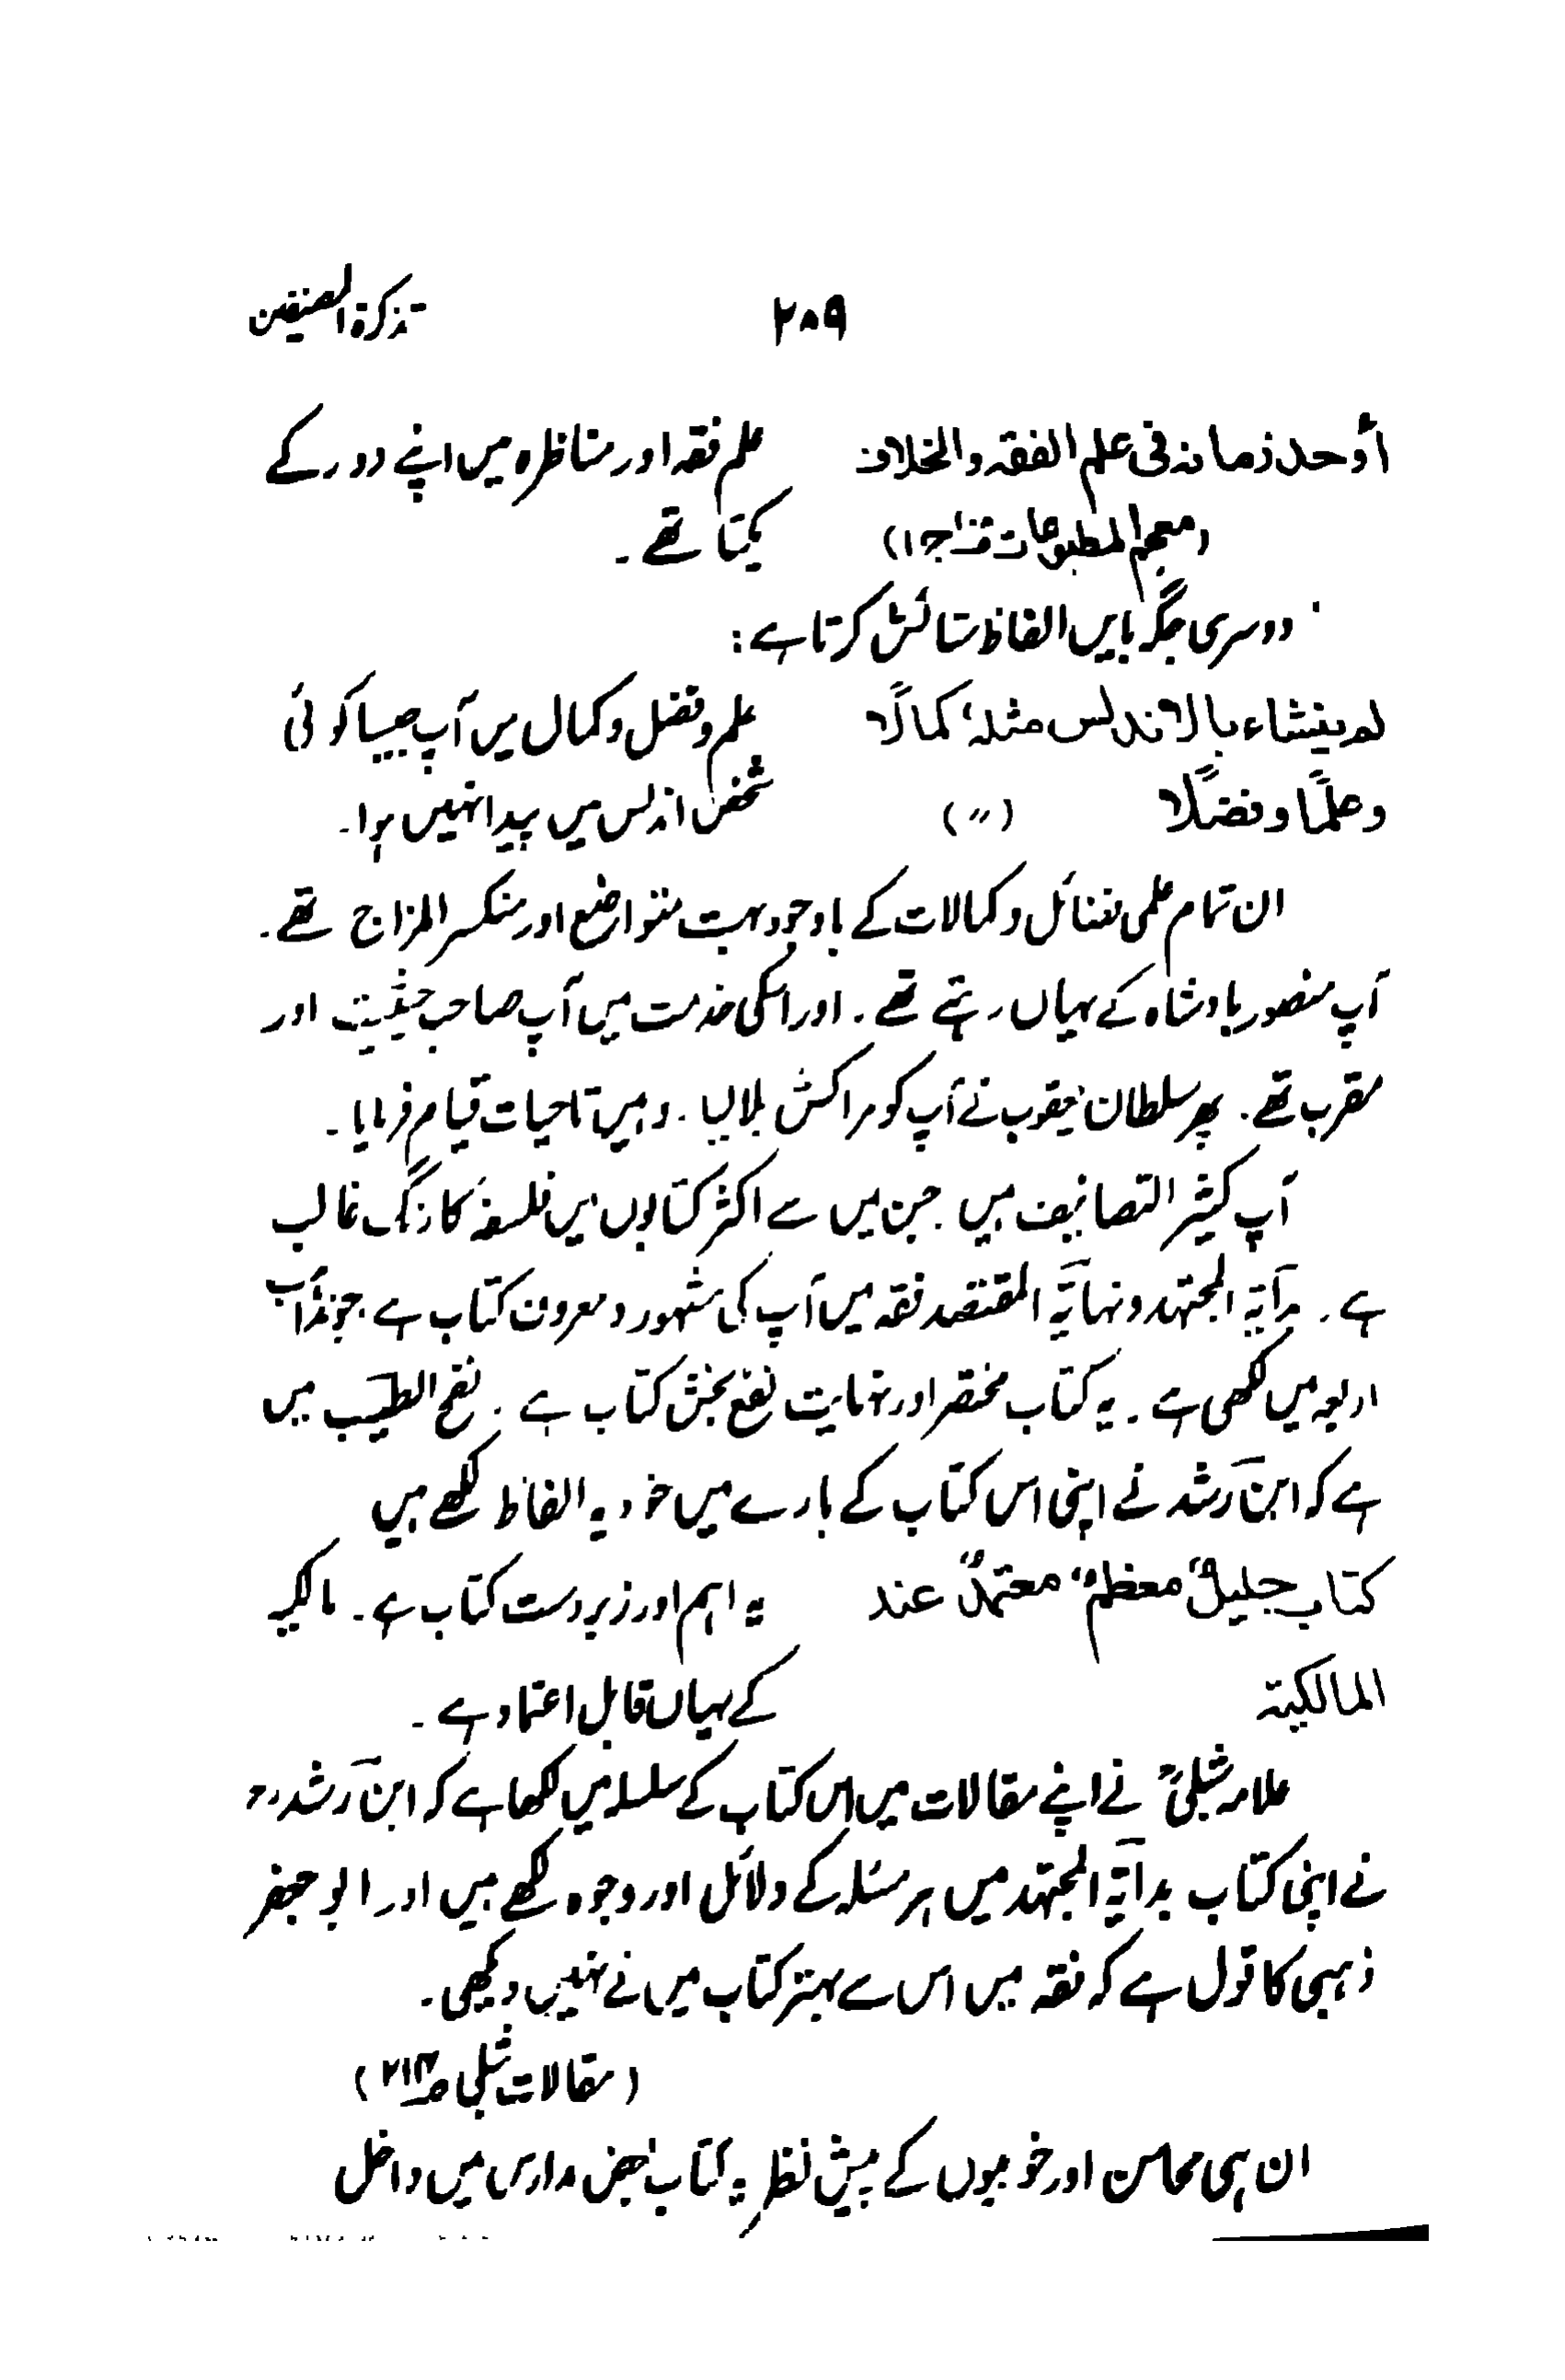 تذکرۃ المصنفین ۲۰۹
أوحد زمانہ فی علم الفقہ والخلاف علم فقہ اور مناظرہ میں اپنے دور کے
(معجم المطبوعات ج۱) یکتا تھے۔
دوسری جگہ بایں الفاظ ستائش کرتا ہے:
لم ینشاء بالاندلس مثلہ کمالًا علم و فضل و کمال میں آپ جیسا کوئی
وعلمًا وفضلًا (〃) شخص اندلس میں پیدا نہیں ہوا۔
ان تمام علمی فضائل و کمالات کے باوجود بہت متواضع اور منکسر المزاج تھے۔
آپ منصور بادشاہ کے یہاں رہتے تھے۔ اور اسکی خدمت میں آپ صاحب حیثیت اور
مقرب تھے۔ پھر سلطان یعقوب نے آپ کو مراکش بلا لیا۔ وہیں تاحیات قیام فرمایا۔
آپ کثیر التصانیف ہیں جن میں سے اکثر کتابوں میں فلسفہ کا رنگ غالب
ہے۔ بدایۃ المجتہد و نہایۃ المقتصد فقہ میں آپ کی مشہور و معروف کتاب ہے جو مذاہب
اربعہ میں لکھی ہے۔ یہ کتاب مختصر اور نہایت نفع بخش کتاب ہے۔ نفح الطیب میں
ہے کہ ابن رشد نے اپنی اس کتاب کے بارے میں خود یہ الفاظ لکھے ہیں
کتاب جلیلٌ معظمٌ معتمدٌ عند یہ اہم اور زبردست کتاب ہے۔ مالکیہ
المالکیۃ کے یہاں قابل اعتماد ہے۔
علامہ شبلیؒ نے اپنے مقالات میں اس کتاب کے سلسلہ میں لکھا ہے کہ ابن رشدؒ
نے اپنی کتاب بدایۃ المجتہد میں ہر مسئلہ کے دلائل اور وجوہ لکھے ہیں اور ابو جعفر
ذہبی کا قول ہے کہ فقہ میں اس سے بہتر کتاب میں نے نہیں دیکھی۔
(مقالات شبلی)
ان ہی محاسن اور خوبیوں کے پیش نظر یہ کتاب بعض مدارس میں داخل